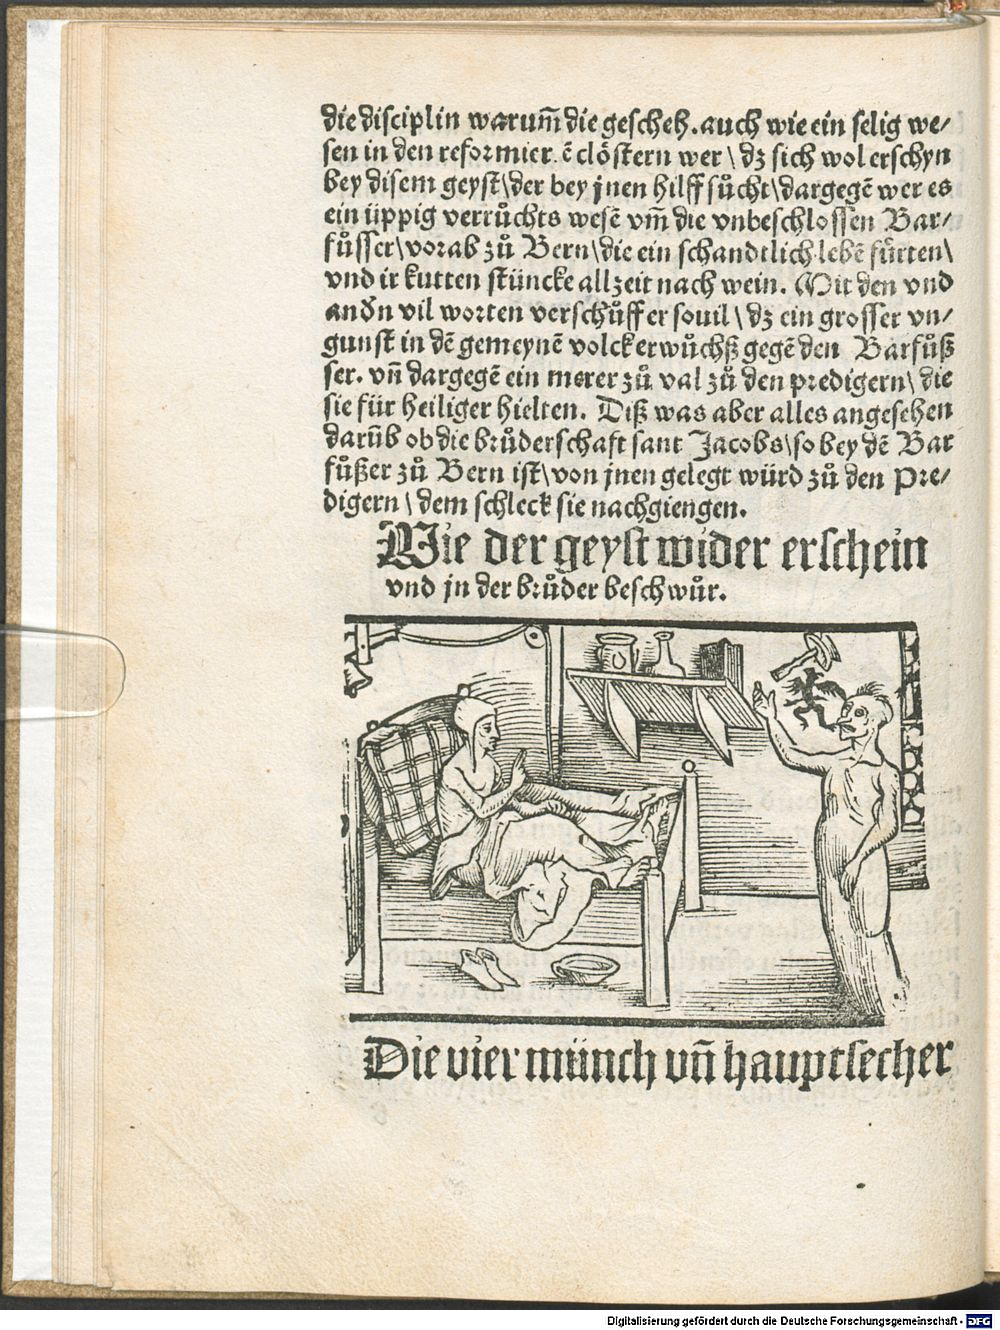 die disciplin warum̄ die gescheh. auch wie ein selig we⸗
sen in den reformier. ē clöstern wer \ dz sich wol erschyn
bey disem geyst \ der bey jnen hilff sůcht \ dargegē wer es
ein üppig verrůchts wesē vm̄ die vnbeschlossen Bar⸗
fůsser \ vorab zů Bern \ die ein schandtlich lebē fürten \
vnd ir kutten stüncke allzeit nach wein. Mit den vnd
andn vil worten verschůff er souil \ dz ein grosser vn⸗
gunst in dē gemeynē volck erwůchß gegē den Barfůß
ser. vn̄ dargegē ein merer zů val zů den predigern \ die
sie für heiliger hielten. Diß was aber alles angesehen
darūb ob die brůderschaft sant Jacobs \ so bey dē Bar
fůßer zů Bern ist \ von jnen gelegt würd zů den Pre⸗
digern \ dem schleck sie nachgiengen.
Wie der geyst wider erschein
vnd jn der brůder beschwůr.
Die vier münch vn̄ hauptsecher
Digitalisierung gefördert durch die Deutsche Forschungsgemeinschaft - DFG